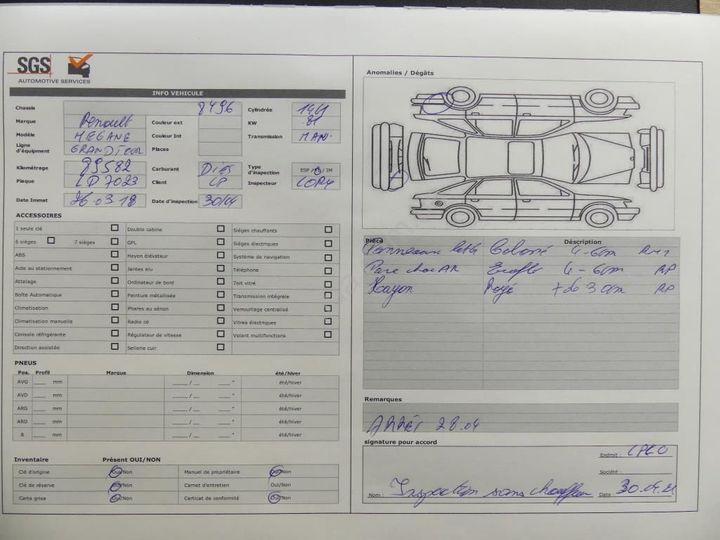 SGS
AUTOMOTIVE SERVICES
INFO VEHICULE
Chassis 8496 Cylindrée 1461
Marque Renault Couleur ext KW 81
Modèle MEGANE Couleur Int Transmission MAN.
Ligne d'équipement GRANDTOUR Places
Kilométrage 99582 Carburant Dies Type d'inspection ESP / IM
Plaque LD7023 Client LP Inspecteur
Date Immat 26.03.18 Date d'inspection 30/04
ACCESSOIRES
1 seule clé Double cabine Sièges chauffants
5 sièges 7 sièges GPL Sièges électriques
ABS Hayon élévateur Système de navigation
Aide au stationnement Jantes alu Téléphone
Attelage Ordinateur de bord Toit vitré
Boîte Automatique Peinture métallisée Transmission intégrale
Climatisation Phares au xénon Verrouillage centralisé
Climatisation manuelle Radio cd Vitres électriques
Console réfrigérante Régulateur de vitesse Volant multifonctions
Direction assistée Sellerie cuir
PNEUS
Pos. Profil Marque Dimension été/hiver
AVG ___ mm ____ / __ ___ " été/hiver
AVD ___ mm ____ / __ ___ " été/hiver
ARG ___ mm ____ / __ ___ " été/hiver
ARD ___ mm ____ / __ ___ " été/hiver
R ___ mm ____ / __ ___ " été/hiver
Inventaire Présent OUI/NON
Clé d'origine Oui/Non Manuel de propriétaire Oui/Non
Clé de réserve Oui/Non Carnet d'entretien Oui/Non
Carte grise Oui/Non Certicat de conformité Oui/Non
Anomalies / Dégâts
Pièce Déscription
Panneau Cabossé 4-6cm
Pare choc AR 4-6cm RP
Hayon Rayé + de 3cm RP
Remarques
Arrêt 28.04
signature pour accord
Endroit :
Société :
Nom : Inspection sans chauffeur Date 30.04.21